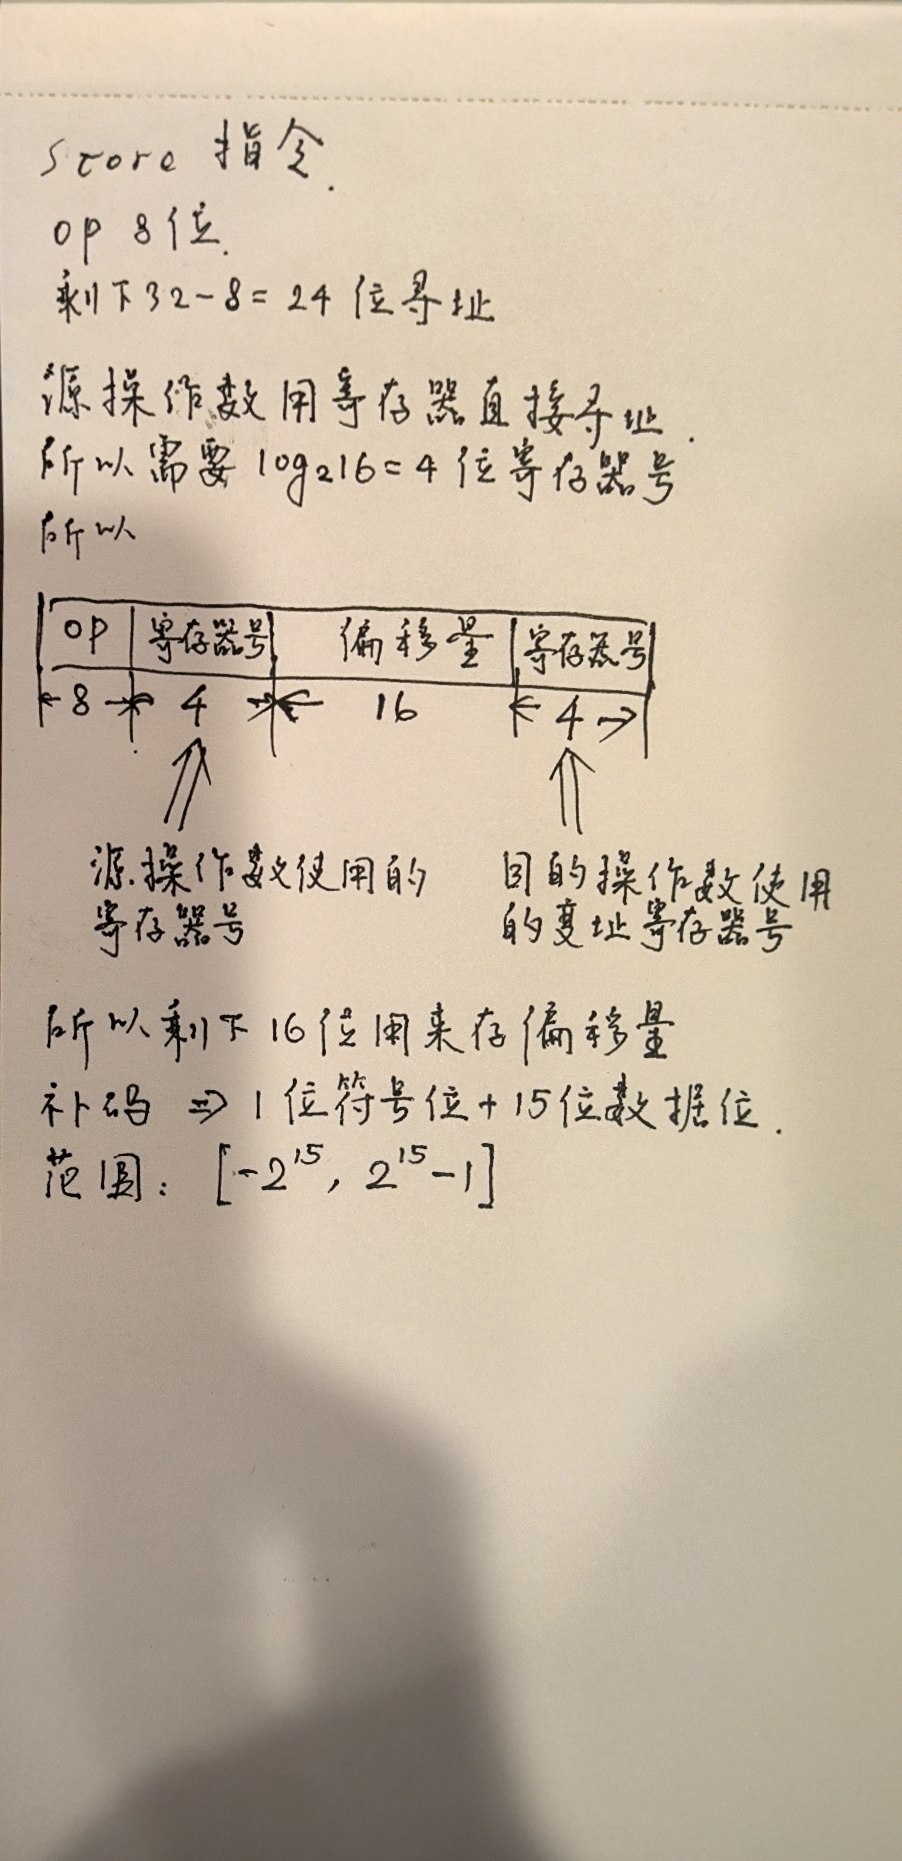 Store 指令.
op 8位.
剩下32-8=24位寻址
源操作数用寄存器直接寻址.
所以需要log₂16=4位寄存器号
所以
op 寄存器号 偏移量 寄存器号
8 4 16 4
源操作数使用的
寄存器号
目的操作数使用
的变址寄存器号
所以剩下16位用来存偏移量
补码 ⇒ 1位符号位+15位数据位.
范围: [-2¹⁵, 2¹⁵-1]